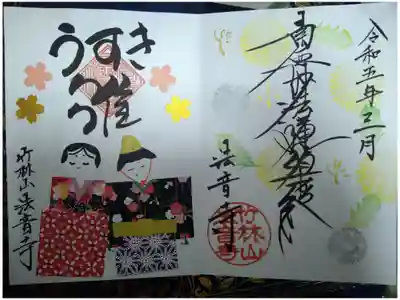 令和五年三月
南無妙法蓮華経
法音寺
竹林山
法音寺
うすき
竹林山法音寺